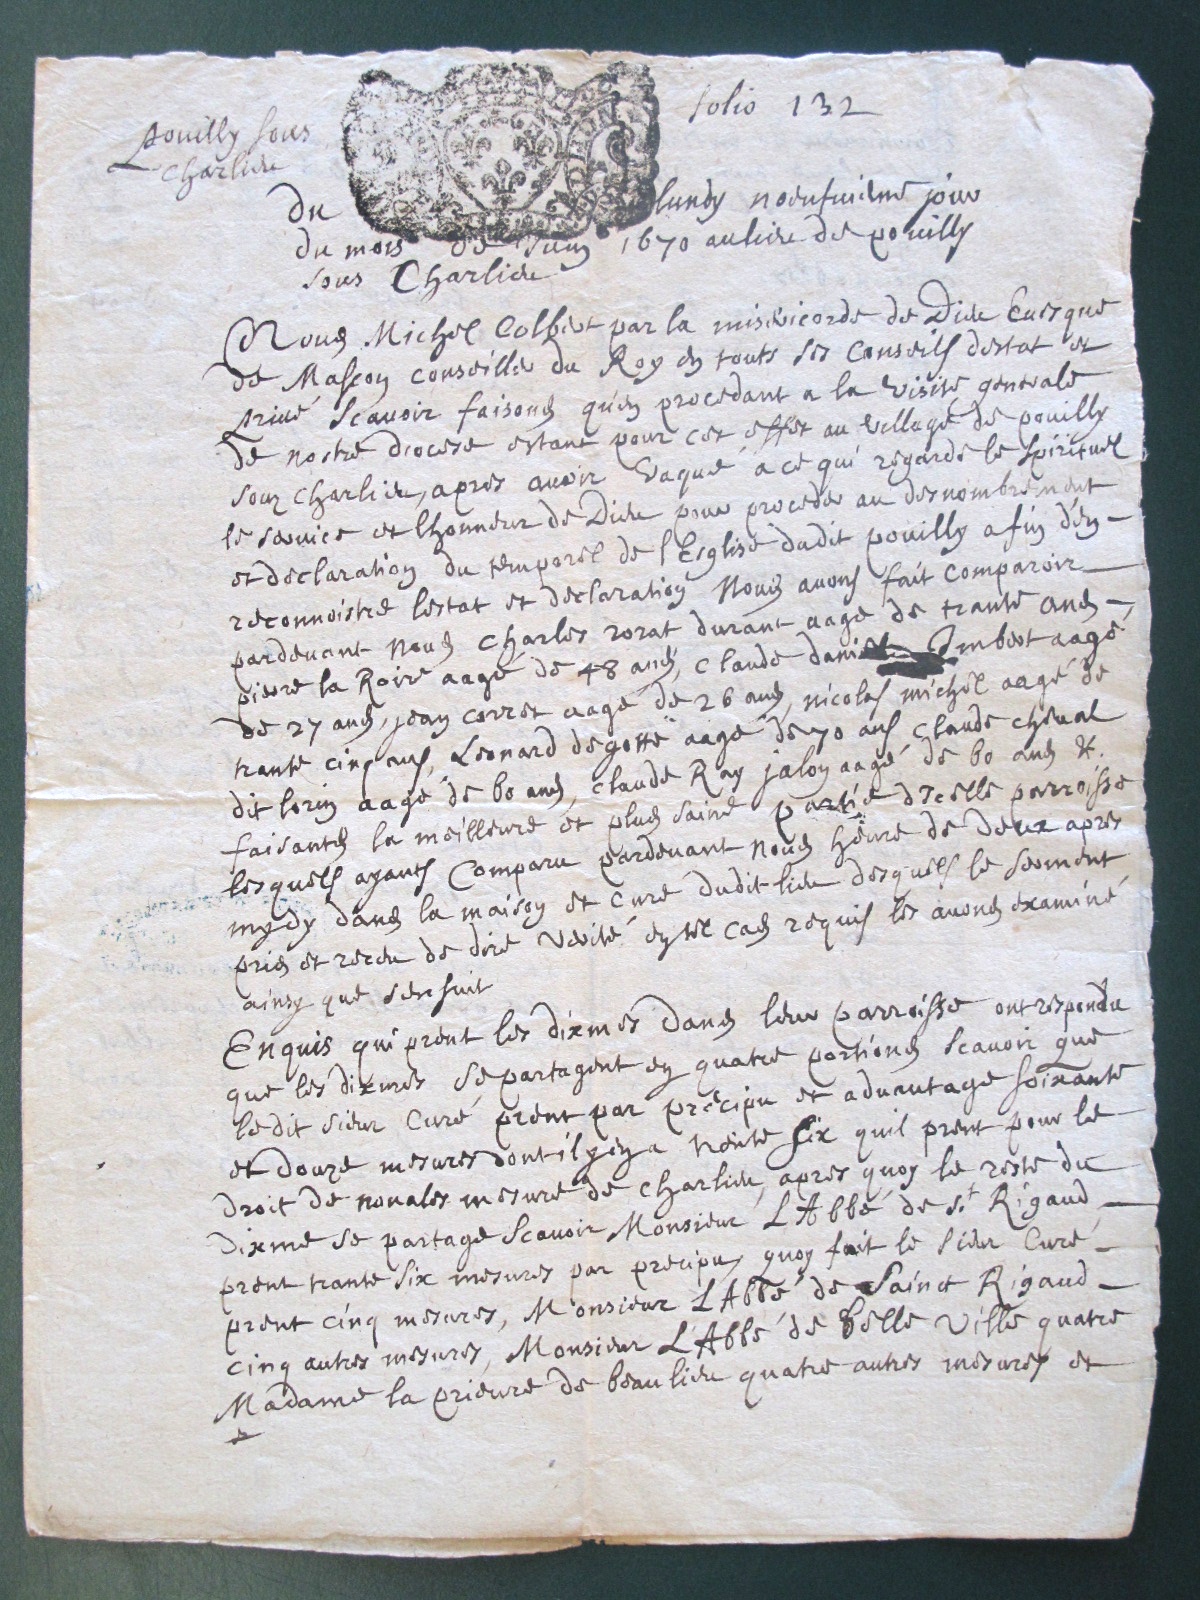 folio 132
Pouilly sous
Charlieu
Du lundy noeufuieme jour
du mois de Juin 1670 au lieu de pouilly
sous Charlieu
Nous Michel Colbert par la misericorde de Dieu Euesque
de Mascon conseiller du Roy en touts ses Conseils destat et
priué Scauoir faisons qu'en procedant a la visite generale
de nostre diocese estant pour cet effet au village de pouilly
souz Charlieu, apres auoir vaqué a ce qui regarde le spirituel
le seruice et lhonneur de Dieu pour proceder au desnombrement
et declaration du temporel de l'Esglise dudit pouilly a fin d'en
reconnoistre lestat et declaration Nous auons fait comparoir
pardeuant Nous Charles rorat durant aage de trante ans
pierre la Roire aage de 48 ans, Claude daniel Imbert aagé
de 27 ans, jean corret aagé de 26 ans, nicolas michel aagé de
trante cinq ans, Leonard degotte aagé de 70 ans Claude cheual
dit lorin aagé de 60 ans, claude Ray jaloy aagé de 60 ans &.
faisants la meilleure et plus saine partie d'Icelle parroisse
lesquels ayants Comparu pardeuant nous heure de deux apres
mydy dans la maison et cure dudit lieu desquels le serment
pris et receu de dire verité en tel cas requis les auons examiné
ainsy que sensuit
Enquis qui prent les dixmes dans leur parroisse ont respondu
que les dixmes se partagent en quatre portions Scauoir que
le dit sieur Curé prent par précipu et aduantage soixante
et douze mesures dont il y en a trente six quil prent pour le
droit de nouales mesure de Charlieu, apres quoy le reste du
dixme se partage Scauoir Monsieur L'Abbé de St Rigaud
prent trante six mesures par precipu, quoy fait le sieur Curé
prent cinq mesures, Monsieur L'Abbé de Sainct Rigaud
cinq autres mesures, Monsieur L'Abbé de belle ville quatre
Madame la prieure de beaulieu quatre autres mesures et